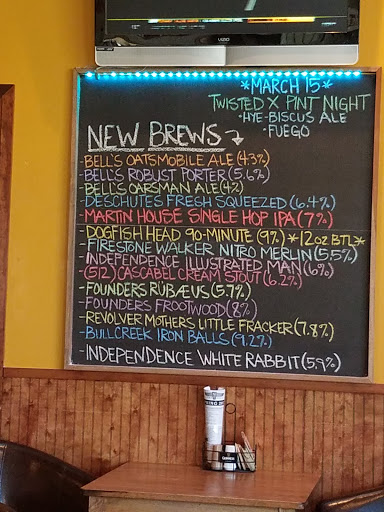 VIZIO
*MARCH 15*
TWISTED X PINT NIGHT
-HYE-BISCUS ALE
-FUEGO
NEW BREWS
-BELL'S OATSMOBILE ALE (4.3%)
-BELL'S ROBUST PORTER (5.6%)
-BELL'S OARSMAN ALE (4%)
-DESCHUTES FRESH SQUEEZED (6.4%)
-MARTIN HOUSE SINGLE HOP IPA (7%)
-DOGFISH HEAD 90-MINUTE (9%) *12oz BTL*
-FIRESTONE WALKER NITRO MERLIN (5.5%)
-INDEPENDENCE ILLUSTRATED MAN (6%)
-(512) CASCABEL CREAM STOUT (6.2%)
-FOUNDERS RÜBÆUS (5.7%)
-FOUNDERS FROOTWOOD (8%)
-REVOLVER MOTHERS LITTLE FRACKER (7.8%)
-BULLCREEK IRON BALLS (9.2%)
-INDEPENDENCE WHITE RABBIT (5.9%)